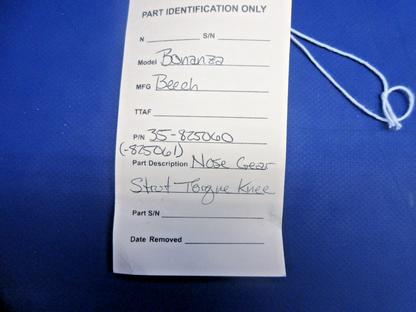 PART IDENTIFICATION ONLY
N S/N
Model Bonanza
MFG Beech
TTAF
P/N 35-825060
(-825061)
Part Description Nose Gear
Strut Torque Knee
Part S/N
Date Removed